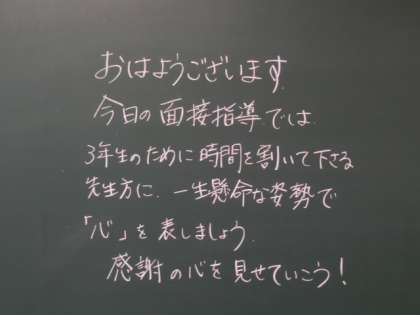 おはようございます
今日の面接指導では
3年生のために時間を割いて下さる
先生方に、一生懸命な姿勢で
「心」を表しましょう
感謝の心を見せていこう!